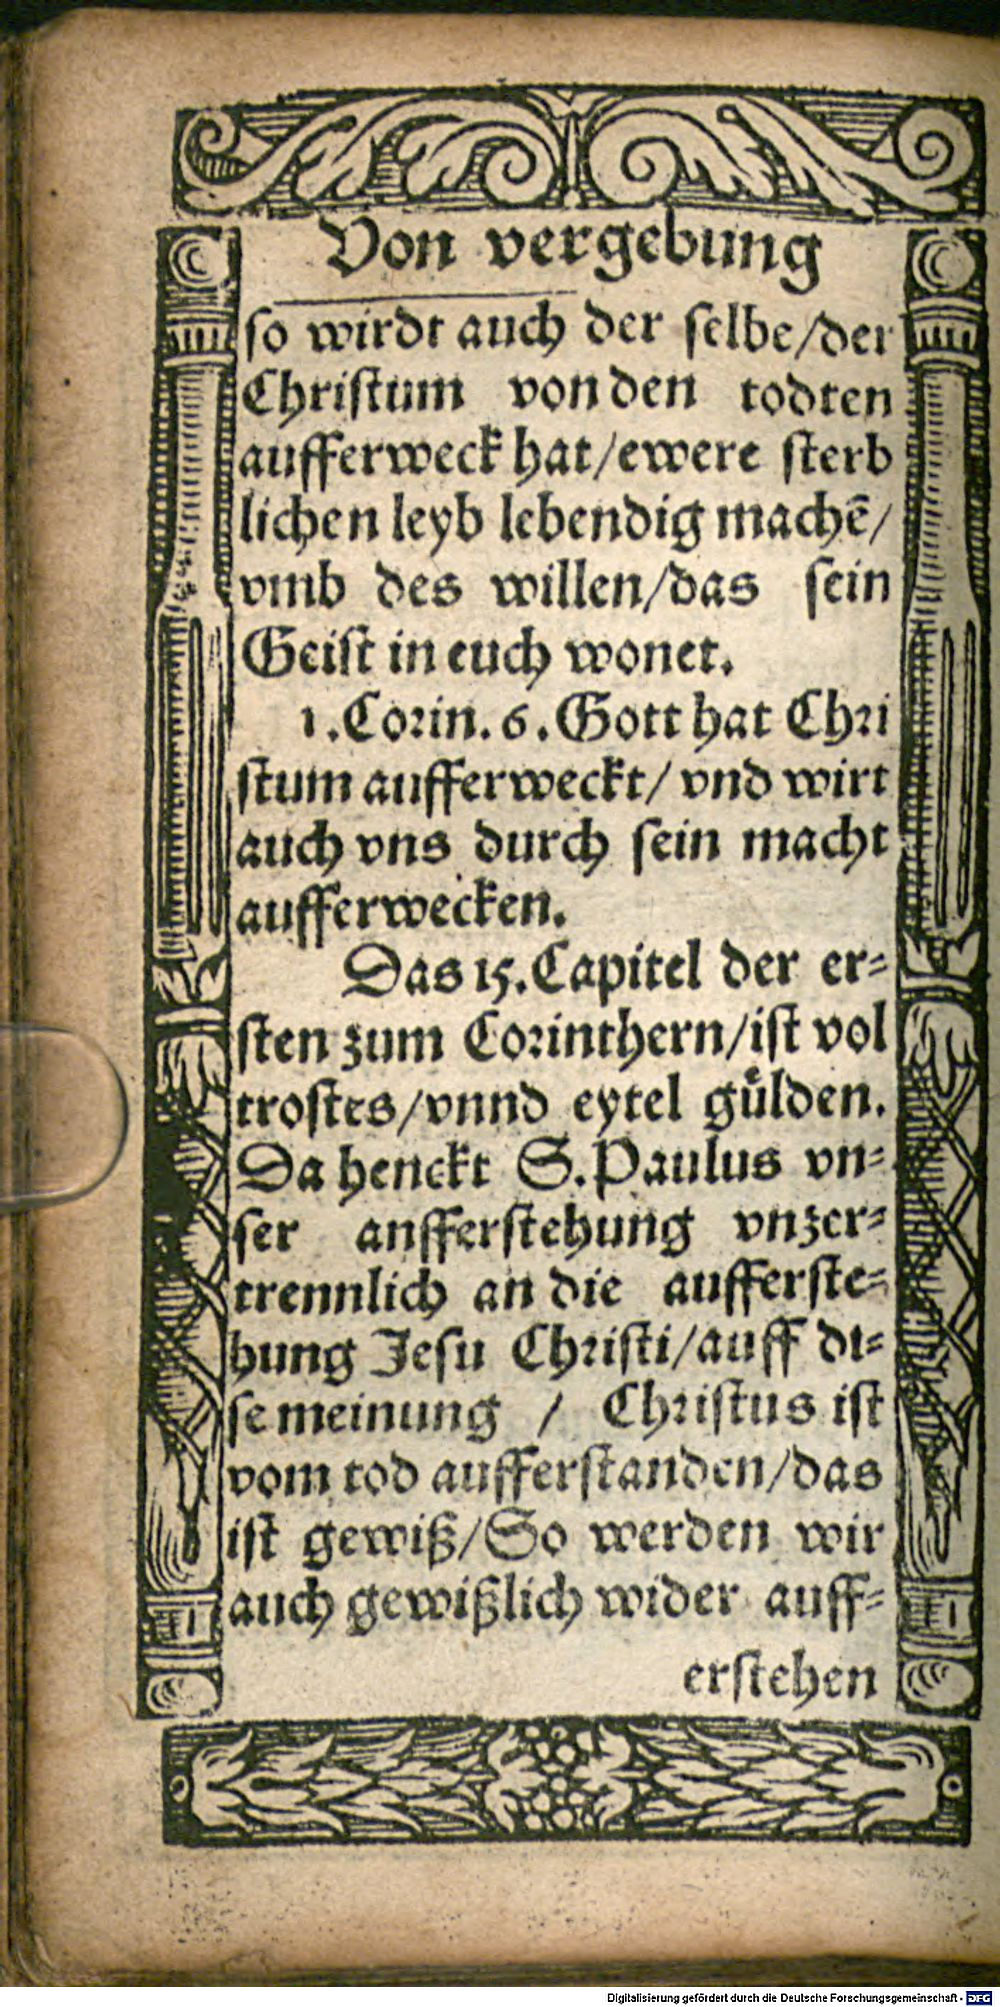 Von vergebung
so wirdt auch der selbe/der
Christum von den todten
aufferweck hat/ewere sterb
lichen leyb lebendig machē/
vmb des willen/das sein
Geist in euch wonet.
1.Corin.6.Gott hat Chri
stum aufferweckt/ vnd wirt
auch vns durch sein macht
aufferwecken.
Das 15.Capitel der er-
sten zum Corinthern/ist vol
trostes/vnnd eytel guͤlden.
Da henckt S.Paulus vn-
ser anfferstehung vnzer-
trennlich an die aufferste-
hung Jesu Christi/auff di-
se meinung / Christus ist
vom tod aufferstanden/das
ist gewiß/So werden wir
auch gewißlich wider auff-
erstehen
Digitalisierung gefördert durch die Deutsche Forschungsgemeinschaft - DFG